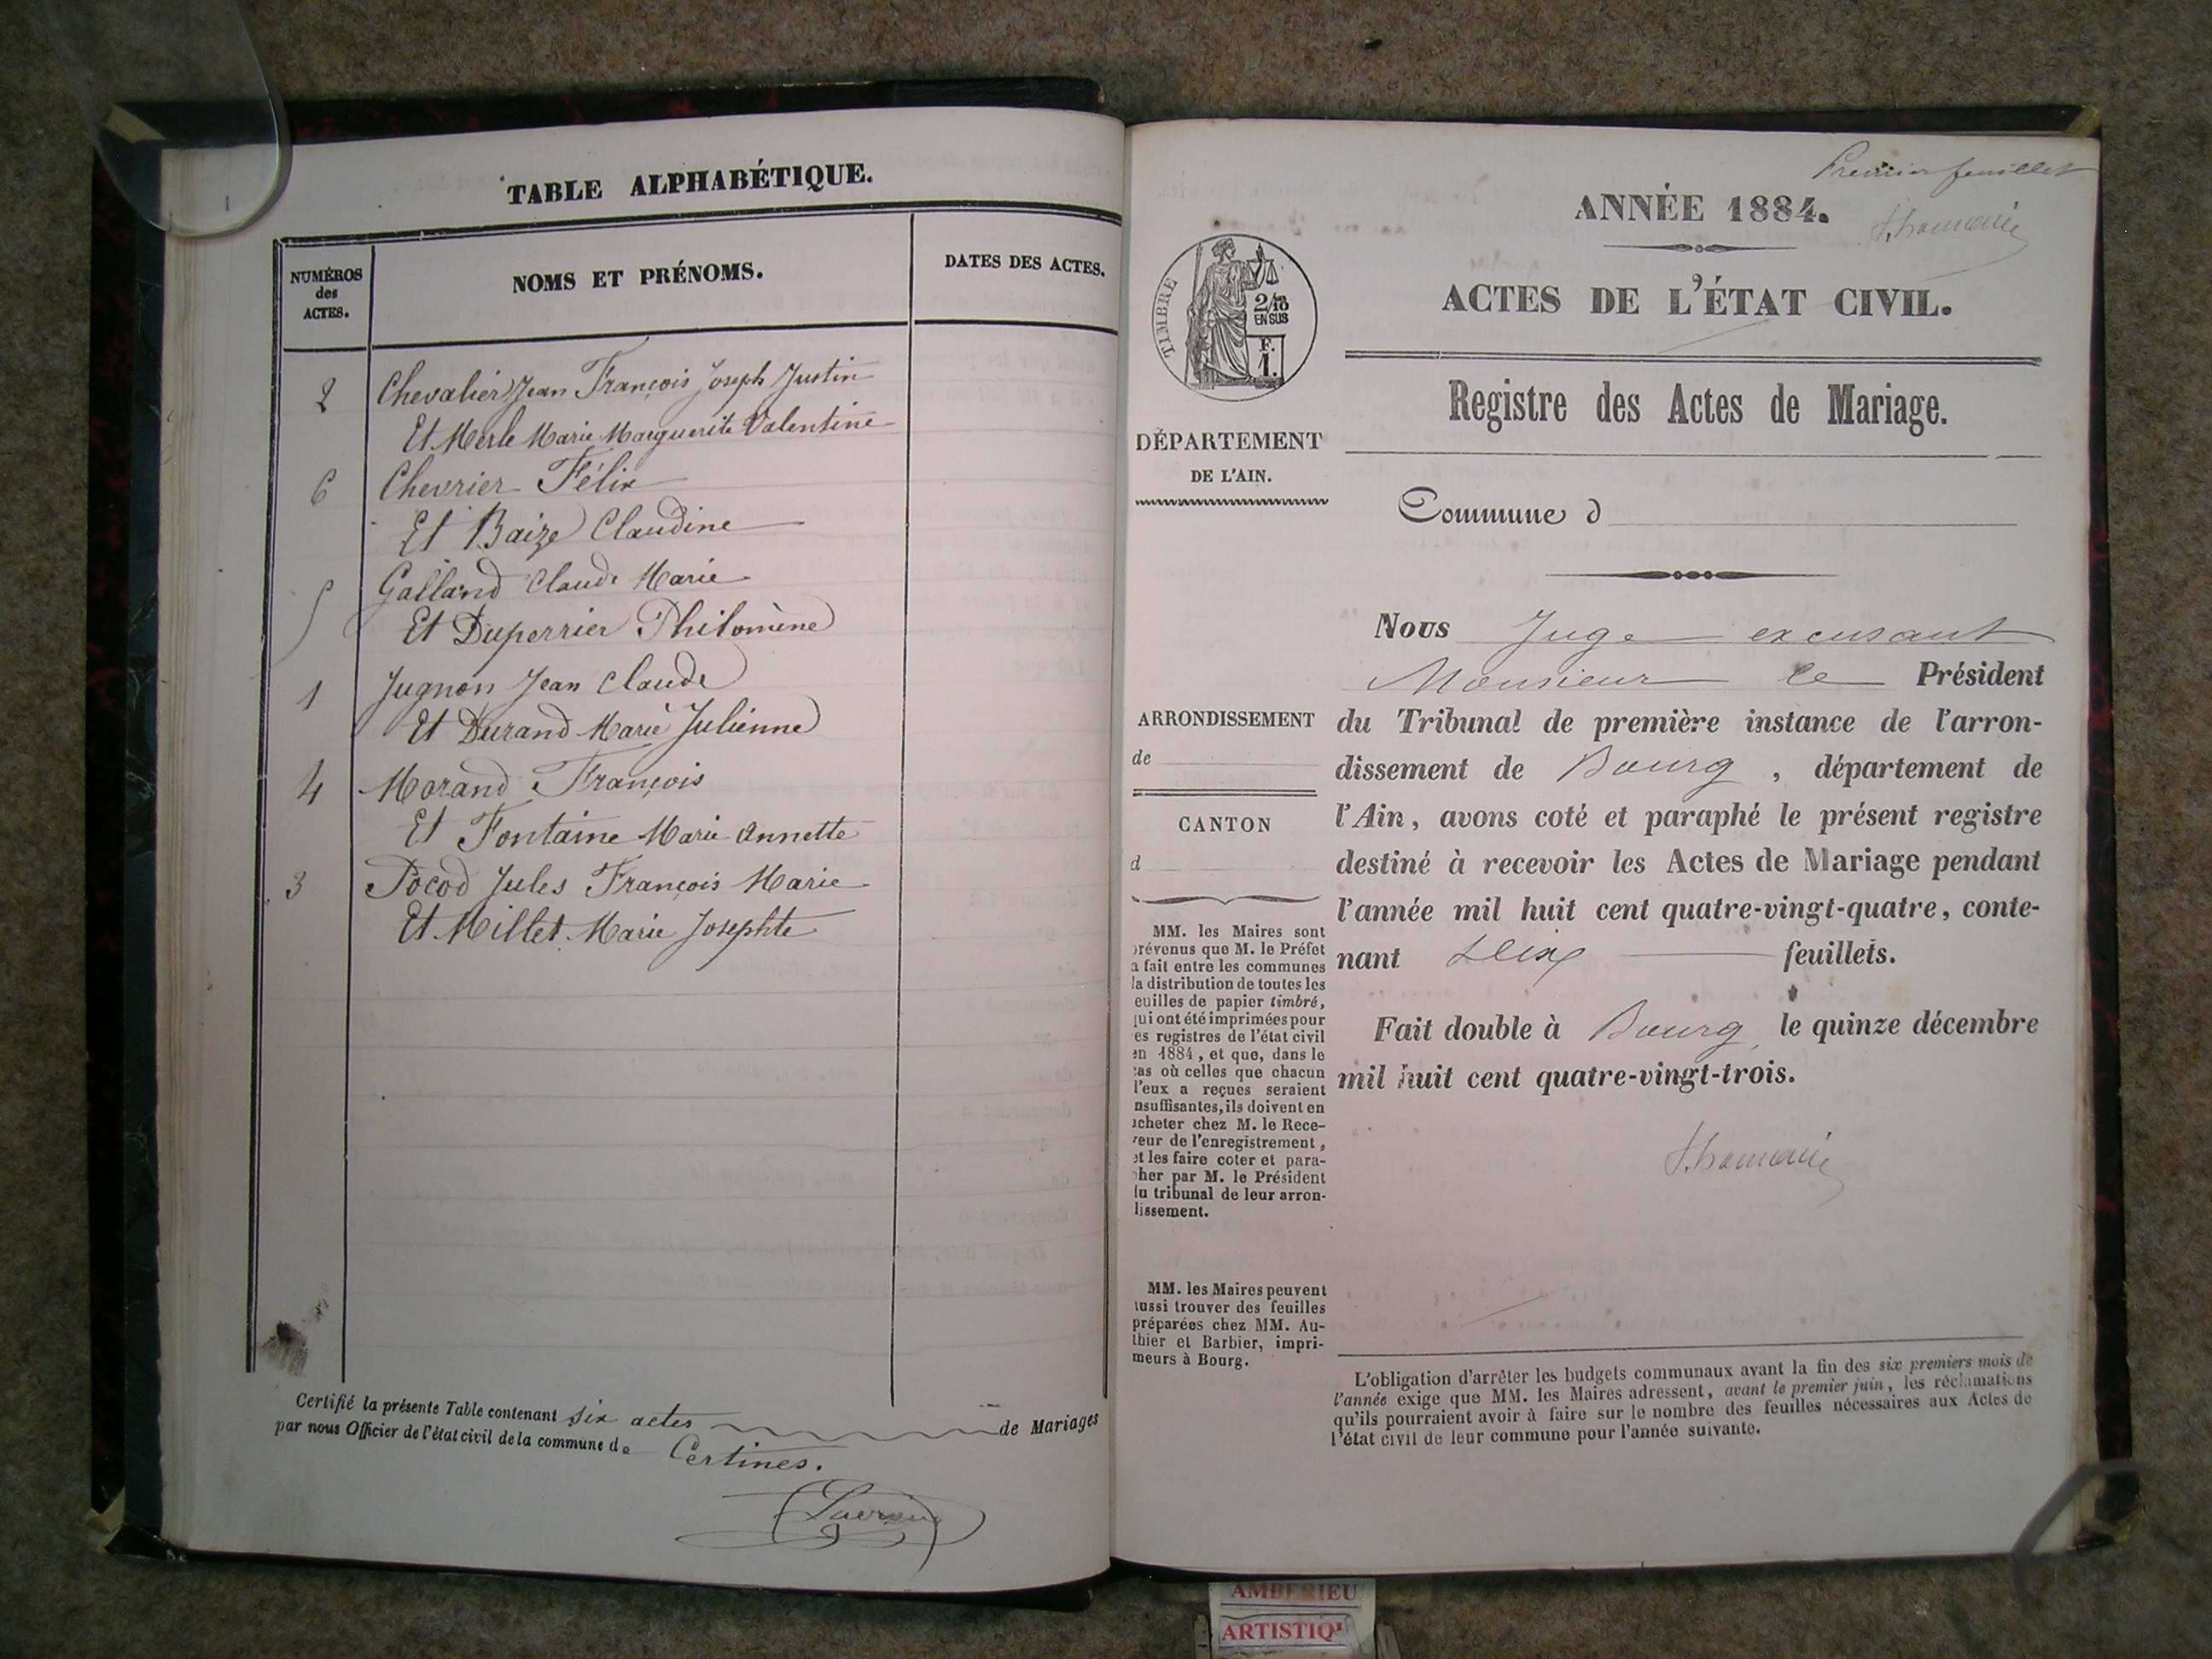 TABLE ALPHABÉTIQUE.
NUMÉROS
des
ACTES.
NOMS ET PRÉNOMS.
DATES DES ACTES.
2 Chevalier Jean François Joseph Justin
Et Merle Marie Marguerite Valentine
6 Chevrier Félix
Et Baize Claudine
5 Galland Claude Marie
Et Duperrier Philomène
1 Jugnon Jean Claude
Et Durand Marie Julienne
4 Morand François
Et Fontaine Marie Annette
3 Pocod Jules François Marie
Et Millet Marie Josephte
Certifié la présente Table contenant six actes de Mariages
par nous Officier de l'état civil de la commune de Certines.
Premier feuillet
ANNÉE 1884.
ACTES DE L'ÉTAT CIVIL.
TIMBRE
2/10
EN SUS
F.
1.
Registre des Actes de Mariage.
DÉPARTEMENT
DE L'AIN.
Commune d
ARRONDISSEMENT
de
CANTON
d
MM. les Maires sont
prévenus que M. le Préfet
a fait entre les communes
la distribution de toutes les
euilles de papier timbré,
qui ont été imprimées pour
es registres de l'état civil
en 1884, et que, dans le
cas où celles que chacun
d'eux a reçues seraient
nsuffisantes, ils doivent en
acheter chez M. le Rece-
veur de l'enregistrement,
et les faire coter et para-
pher par M. le Président
du tribunal de leur arron-
dissement.
MM. les Maires peuvent
aussi trouver des feuilles
préparées chez MM. Au-
thier et Barbier, impri-
meurs à Bourg.
Nous Juge excusant
Monsieur le Président
du Tribunal de première instance de l'arron-
dissement de Bourg, département de
l'Ain, avons coté et paraphé le présent registre
destiné à recevoir les Actes de Mariage pendant
l'année mil huit cent quatre-vingt-quatre, conte-
nant feuillets.
Fait double à Bourg, le quinze décembre
mil huit cent quatre-vingt-trois.
L'obligation d'arrêter les budgets communaux avant la fin des six premiers mois de
l'année exige que MM. les Maires adressent, avant le premier juin, les réclamations
qu'ils pourraient avoir à faire sur le nombre des feuilles nécessaires aux Actes de
l'état civil de leur commune pour l'année suivante.
AMBERIEU
ARTISTIQ